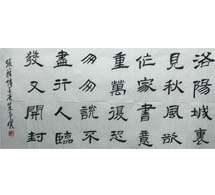 洛陽城裏
見秋風欲
作家書意
重萬復恐
匆匆說不
盡行人臨
發又開封
張籍詩